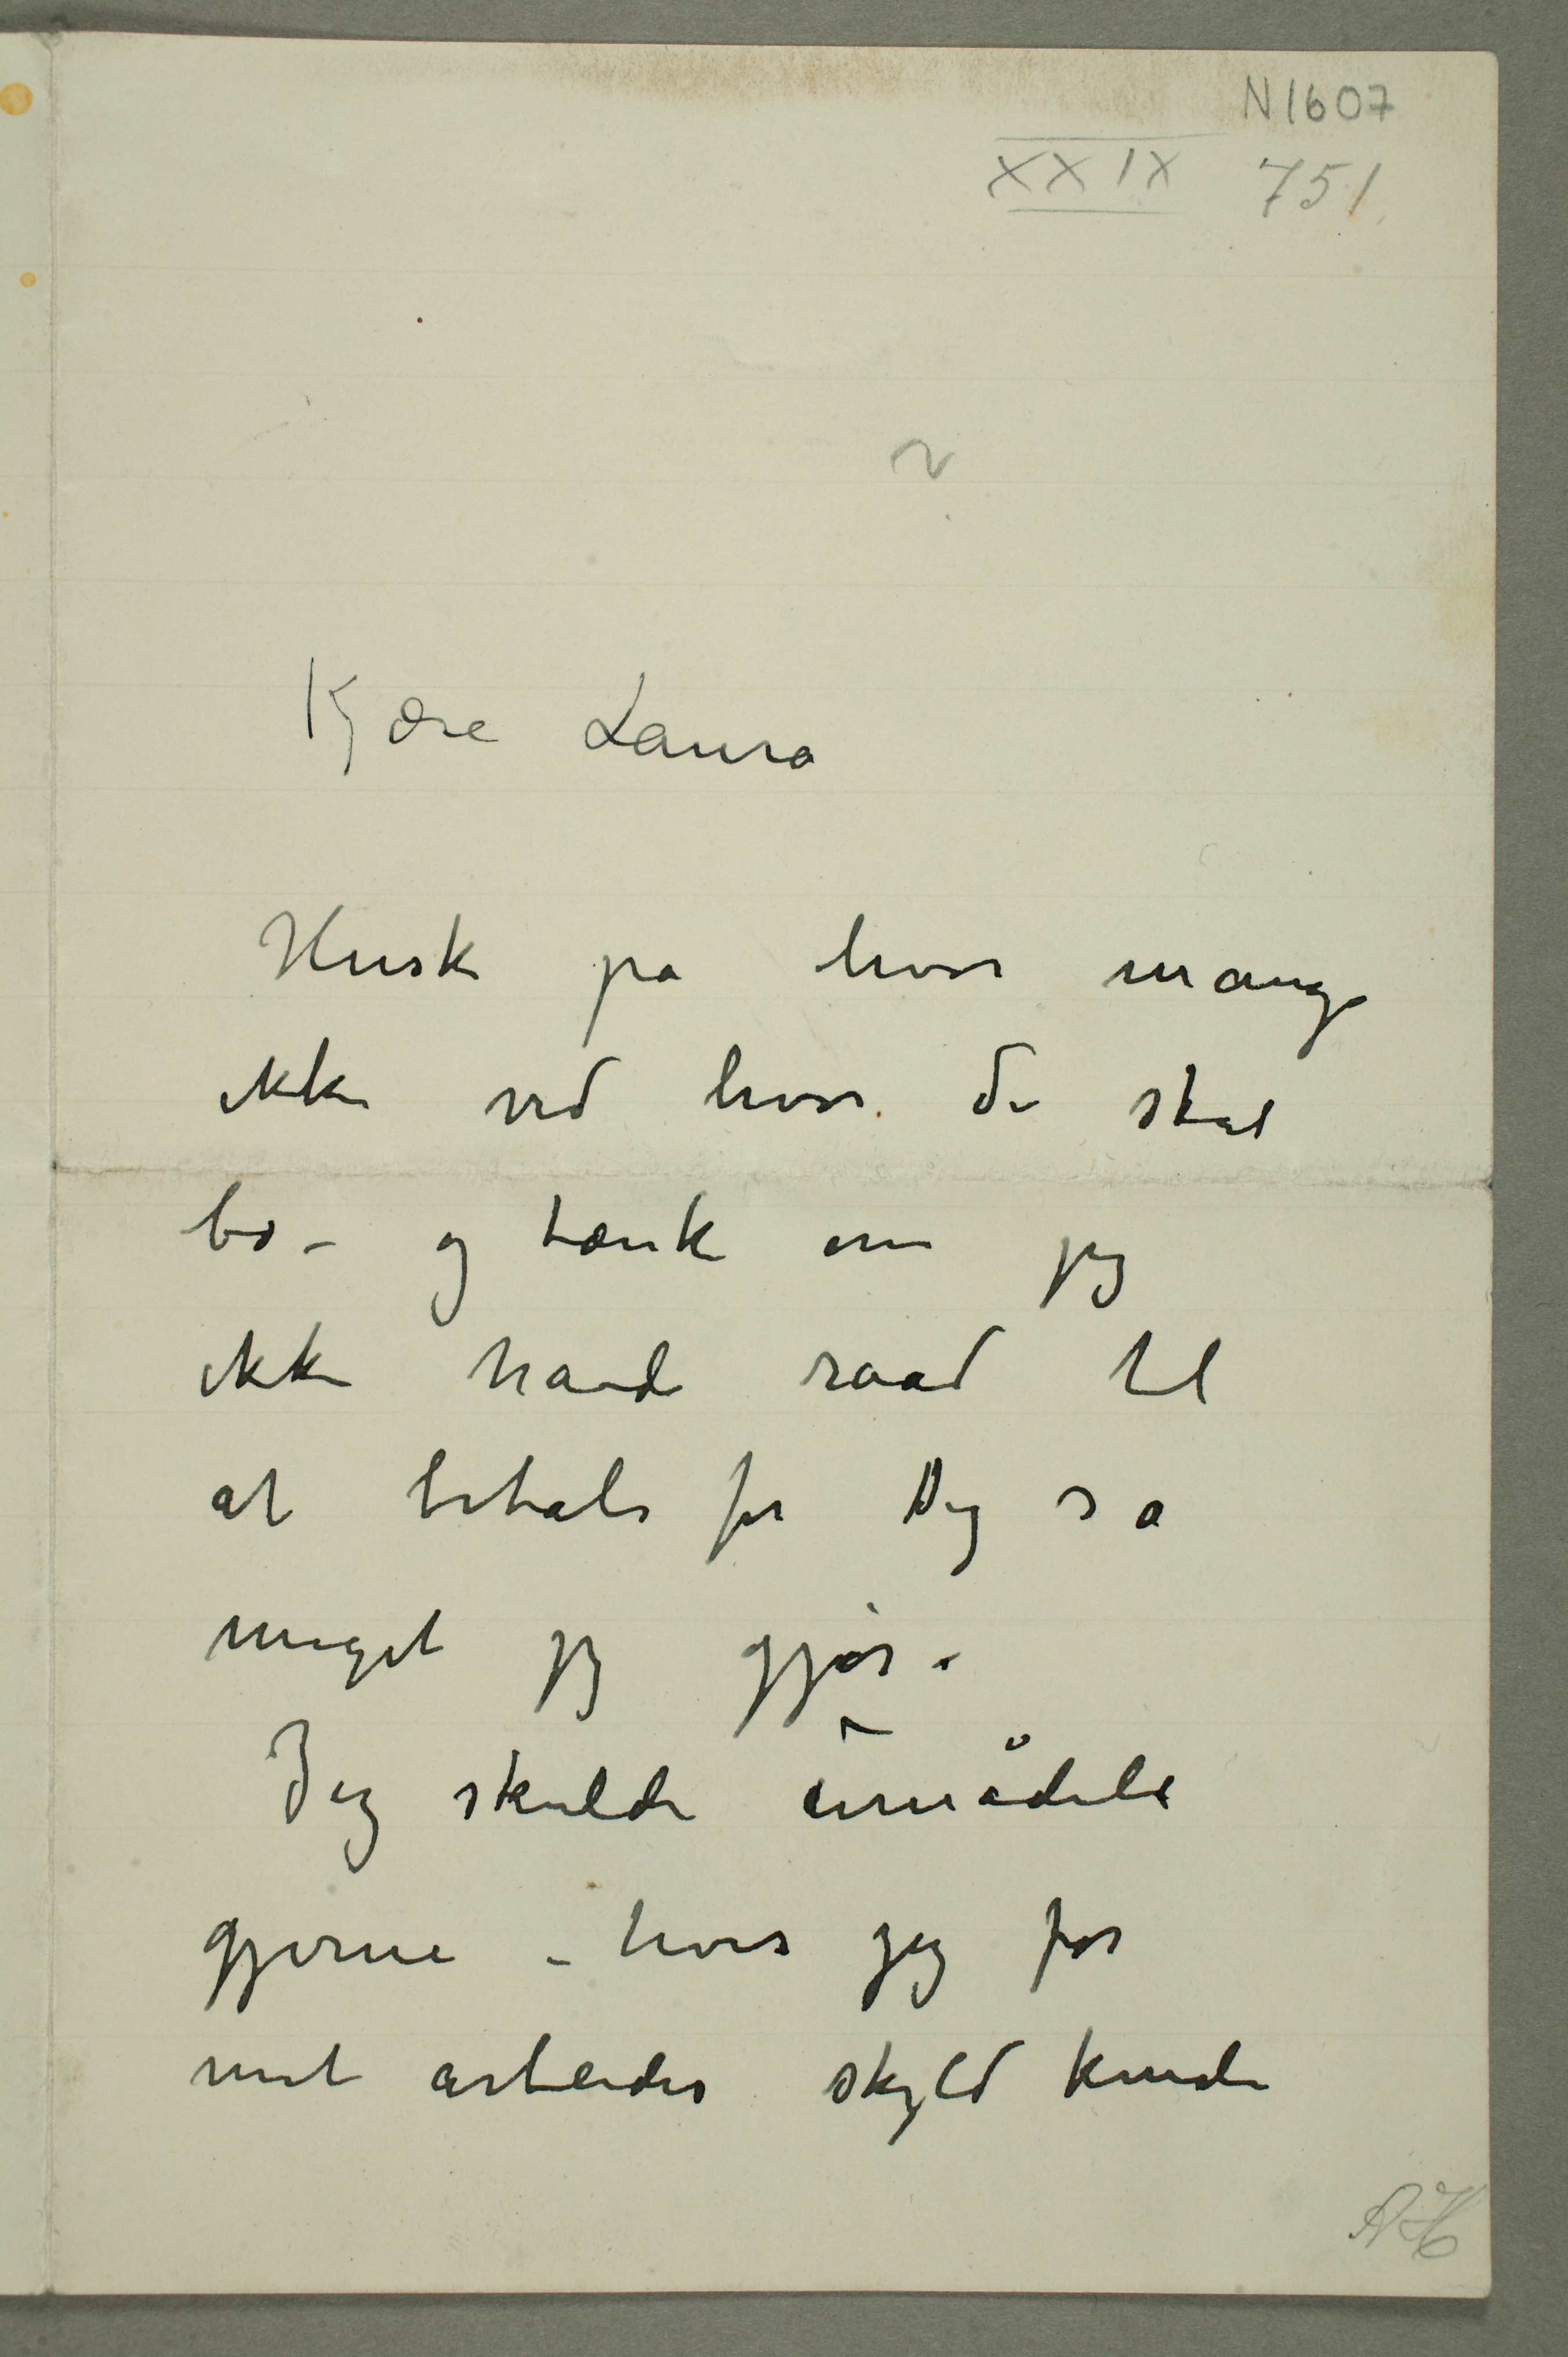 N1607
XXIX 751
Kjære Laura
Husk på hvor mange
ikke ved hvor de skal
bo – og tænk om jeg
ikke havde raad til
at betale for Dig så
meget jeg gjør.
Jeg skulde umådelig
gjerne – hvis jeg for
mit arbeides skyld kunde
AH